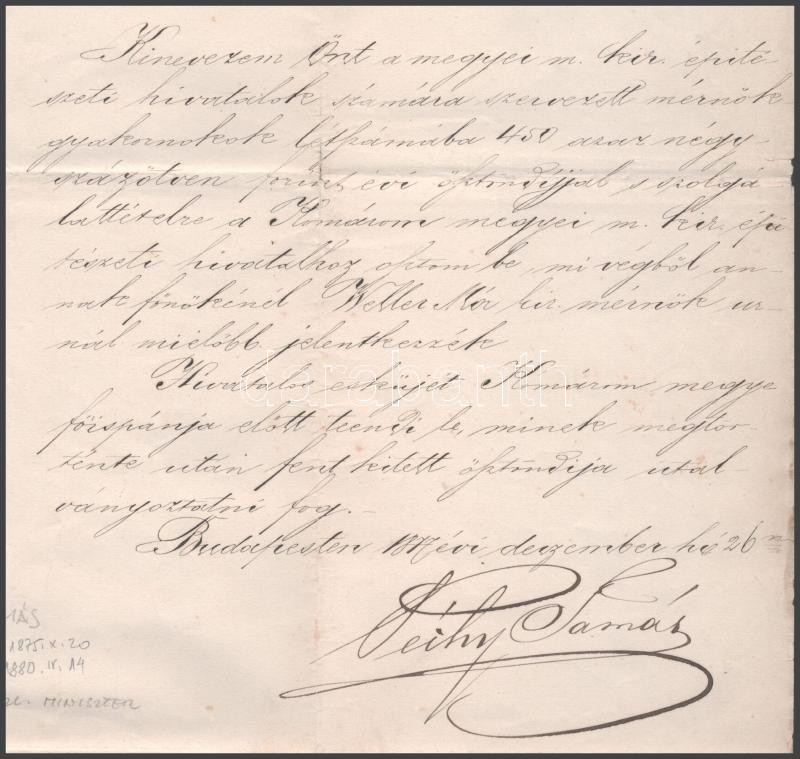 Kinevezem Önt a megyei m. kir. épité-
szeti hivatalok számára szervezett mérnök-
gyakornokok létszámába 450 azaz négy-
százötven forint évi ösztöndijjal s szolgá
lattételre a Komárom megyei m. kir. épi
tészeti hivatalhoz osztom be, mi végből an-
nak főnökénél Weller Mór kir. mérnök ur-
nál mielőbb jelentkezzék
Hivatalos esküjét Komárom megye
főispánja előtt teendi le, minek megtör-
ténte után fent kitett ösztöndija utal-
ványoztatni fog.-
Budapesten évi deczember hó 26 n
Péchy Tamás
MÁS
1875. X. 20
1880. IV. 14
MINISZTER
darabanth